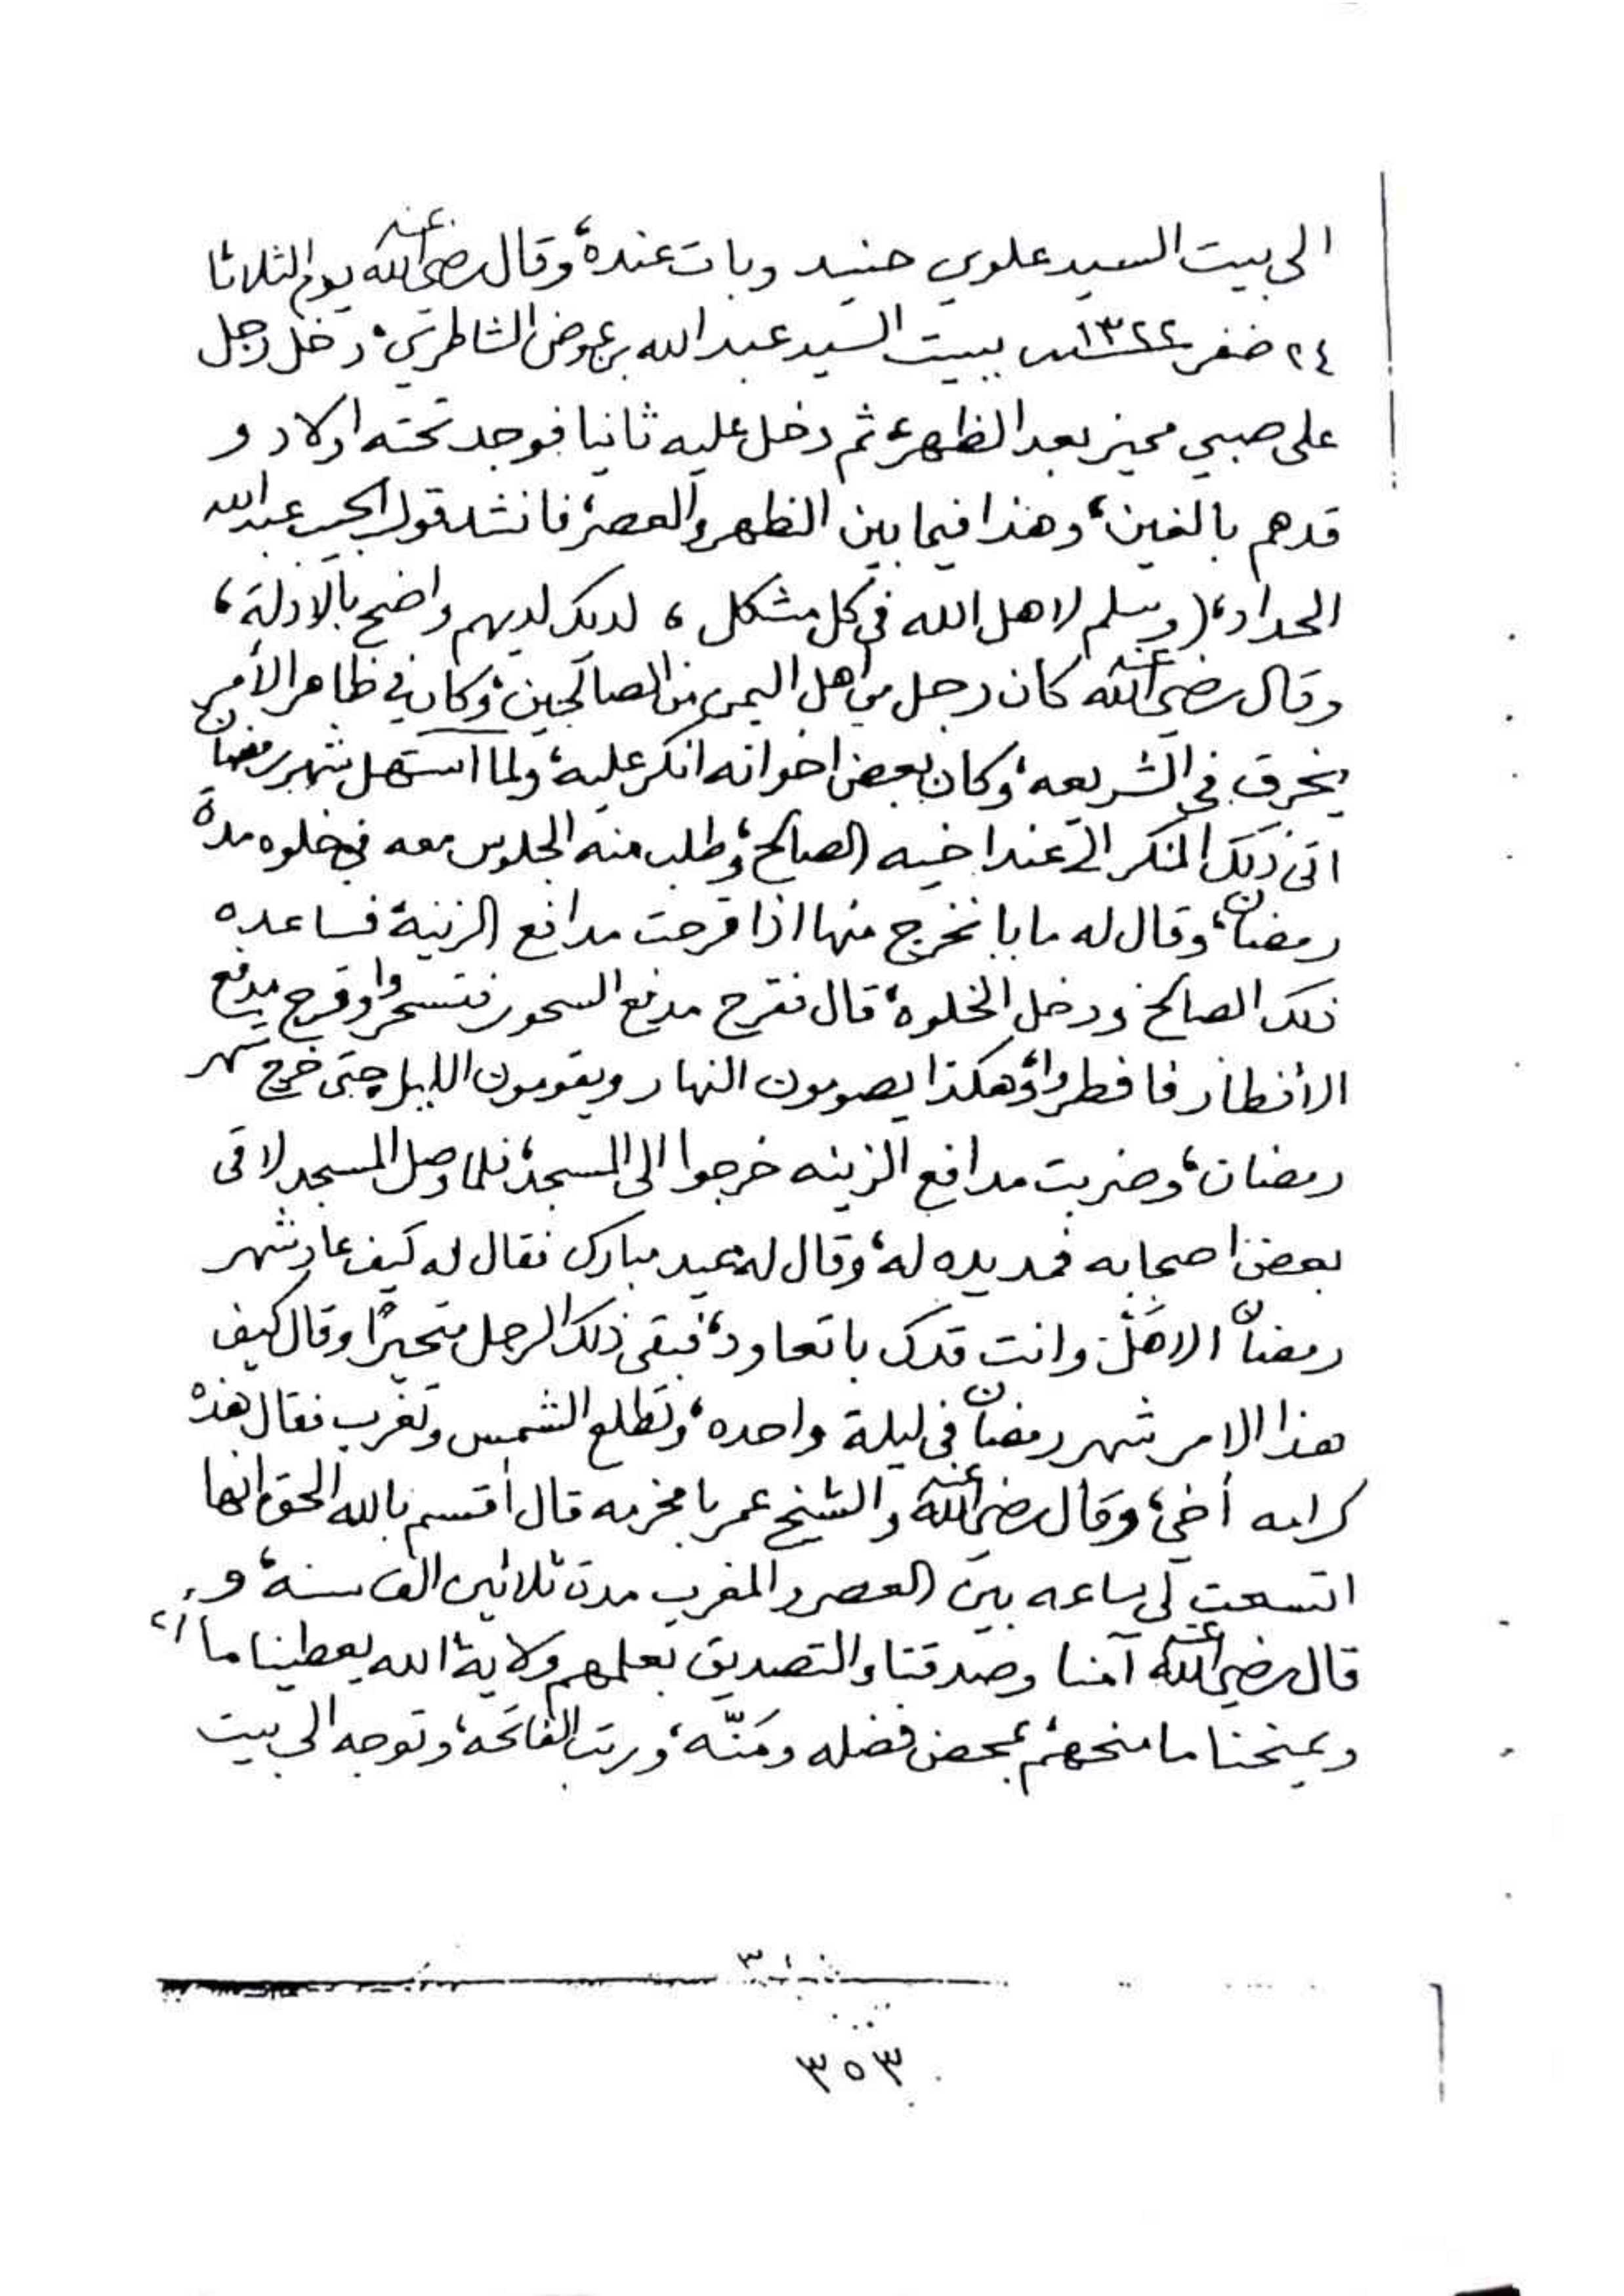 الى بيت السيد علوي حنيد وبات عنده، وقال رضي الله عنه يوم الثلاثا
٢٤ صفر سنة ١٣٢٢ ببيت السيد عبد الله بن عوض الشاطري، دخل رجل
على صبي مميز بعد الظهر، ثم دخل عليه ثانيا فوجد تحته اولاد و
قدهم بالغين، وهذا فيما بين الظهر والعصر، فانشد قول الحبيب عبد الله
الحداد، (وسلم لاهل الله في كل مشكل ، لديك لديهم واضح بالادلة،
وقال رضي الله عنه كان رجل من اهل اليمن من الصالحين، وكان في ظاهر الأمر
يخرق في الشريعه، وكان بعض اخوانه انكر عليه، ولما استهل شهر رمضان
اتى ذلك المنكر الى عند اخيه الصالح، وطلب منه الجلوس معه في خلوه مدة
رمضان، وقال له ما بانخرج منها اذا قرحت مدافع الزينة فساعده
ذلك الصالح ودخل الخلوة، قال فقرح مدفع السحور فتسحروا وقرح مدفع
الأفطار فافطروا، وهكذا يصومون النهار ويقومون الليل حتى خرج شهر
رمضان، وضربت مدافع الزينه خرجوا الى المسجد، فلما وصل المسجد لاقى
بعض اصحابه فمد يده له، وقال له عيد مبارك فقال له كيف عاد شهر
رمضان الا هَلّ وانت قدك باتعاود، فبقى ذلك الرجل متحيرًا وقال كيف
هذا الامر شهر رمضان في ليلة واحده، وتطلع الشمس وتغرب فقال هذه
كرامه أخي، وقال رضي الله عنه والشيخ عمر بامخرمه قال اقسم بالله الحق انها
اتسعت لي ساعه بين العصر والمغرب مدة ثلاثين الف سنة، و
قال رضي الله عنه آمنا وصدقنا والتصديق بعلمهم ولاية، الله يعطينا ما
ويمنحنا ما منحهم، بمحض فضله ومَنّه، ورتب الفاتحة، وتوجه الى بيت
٣٥٣